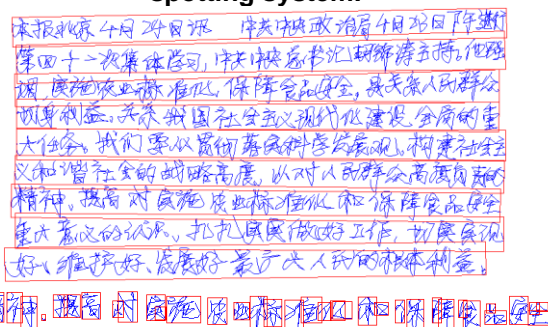 spotting system.
本报北京4月24日讯 中共中央政治局4月23日下午进行
第四十一次集体学习,中共中央总书记胡锦涛主持。他强
调,实施农业标准化,保障食品安全,是关系人民群众
切身利益、关系我国社会主义现代化建设全局的重
大任务。我们要从贯彻落实科学发展观、构建社会主
义和谐社会的战略高度,以对人民群众高度负责的
精神,提高对实施农业标准化和保障食品安全
重大意义的认识,扎扎实实做好工作,切实实现
好、维护好、发展好最广大人民的根本利益。
神,提高对实施农业标准化和保障食品安全